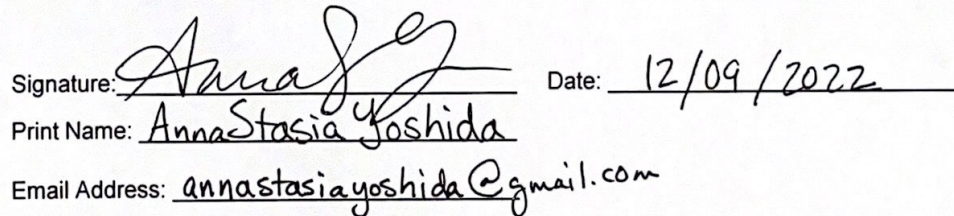 Signature: Anna S Y Date: 12/09/2022
Print Name: AnnaStasia Yoshida
Email Address: annastasiayoshida@gmail.com